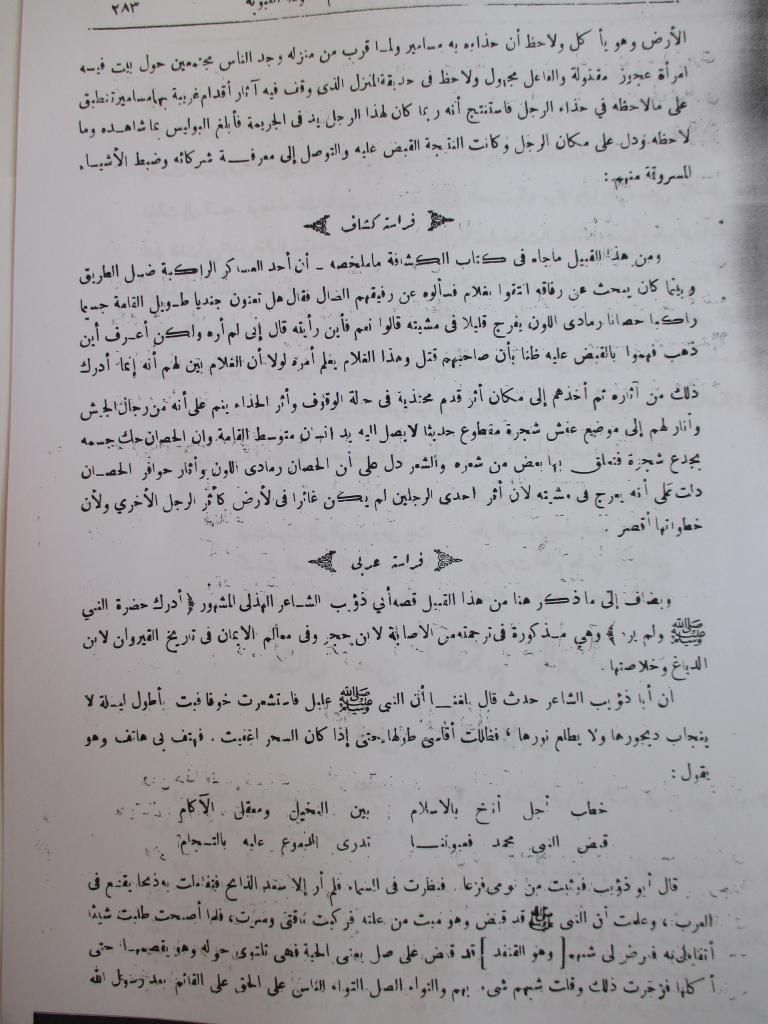 ٢٨٣
الأرض وهو يأكل ولاحظ أن حذاءه به مسامير ولمـا قرب من منزله وجد الناس مجتمعين حول بيت فيـه
امرأة عجوز مقتولة والفاعل مجهول ولاحظ فى حديقة المنزل الذى وقف فيه آثار أقدام غريبة بها مسامير تنطبق
على مالاحظه في حذاء الرجل فاستنتج أنه ربما كان لهذا الرجل يد فى الجريمة فأبلغ البوليس بما شاهـده وما
لاحظه ودل على مكان الرجل وكانت النتيجة القبض عليه والتوصل إلى معرفـة شركائه وضبط الأشيـاء
المسروقة منهم :
فراسة كشاف
ومن هذا القبيل ماجاء فى كتاب الكشافة ماملخصه ـ أن أحد العساكر الراكبة ضـل الطريق
وبينما كان يبحث عن رفاقه التقوا بغلام فسألوه عن رفيقهم الضال فقال هل تعنون جنديا طـويل القامة جسيما
راكبا حصانا رمادى اللون يعرج قليلا فى مشيته قالوا نعم فأين رأيته قال إنى لم أره ولكن أعـرف أين
ذهب فهموا بالقبض عليه ظنا بأن صاحبهم قتل وهذا الغلام يعلم أمره لولا أن الغلام بين لهم أنه إنما أدرك
ذلك من آثاره ثم أخذهم إلى مكان أثر قدم محتذية فى حالة الوقوف وأثر الحذاء ينم على أنه من رجال الجيش
وأشار لهم إلى موضع غصن شجرة مقطوع حديثا لايصل اليه يد انسان متوسط القامة وإن الحصان حك جسمه
بجدع شجرة فتعلق بها بعض من شعره والشعر دل على أن الحصان رمادى اللون وآثار حوافر الحصـان
دلت على أنه يعرج فى مشيته لأن أثر احدى الرجلين لم يكن غائرا فى لأرض كأثر الرجل الأخري ولأن
خطواتها أقصر .
فراسة عربى
ويضاف إلى ما ذكر هنا من هذا القبيل قصة أبي ذؤيب الشاعر الهذلى المشهور ﴿ أدرك حضرة النبي
ﷺ ولم يره ﴾ وهي مـذكورة فى ترجمته من الاصابة لابن حجر وفى معالم الايمان فى تاريخ القيروان لابن
الدباغ وخلاصتها .
أن أبا ذؤيب الشاعر حدث قال بلغنـا أن النبى ﷺ عليل فاستشعرت خوفا فبت بأطول ليـلة لا
ينجاب ديجورها ولا يطلع نورها ؛ فظللت أقاسى طولها حتى إذا كان السحر اغفيت . فهتف بى هاتف وهو
يقول :
خطب أجل أناخ بالاسلام بين النخيل ومعقل الآكام
قبض النبى محمد فعيوننـا تذرى الدموع عليه بالتسجام
قال أبو ذؤيب فوثبت من نومى فزعا . فنظرت فى السماء فلم أر إلا سعد الذابح فتفاءلت به ذبحا يقع فى
العرب ، وعلمت أن النبى ﷺ قد قبض وهو ميت من علته فركبت ناقتى وسرت، فلما أصبحت طلبت شيئا
أتفاءل به فعرض لى شيهم [ وهو القنفد ] قد قبض على صل يعنى الحية فهى تلتوى حوله وهو يقضمهـا حتى
أكلها فزجرت ذلك وقلت شيهم شىء يهم والتواء الصل التواء الناس على الحق على القائم بعد رسول الله